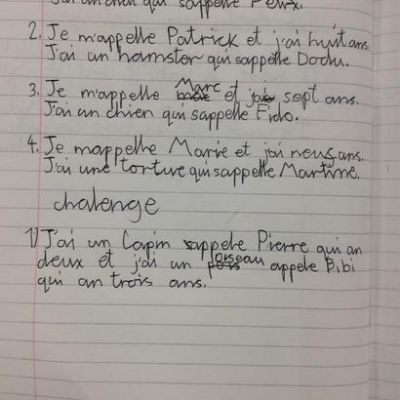 J'ai un chat qui s'appelle Peux.
2. Je m'appelle Patrick et j'ai huit ans.
J'ai un hamster qui sappelle Dodu.
3. Je m'appelle Marc et jai sept ans.
J'ai un chien qui sappelle Fido.
4. Je mappelle Marie et jai neuf ans.
J'ai une torture qui sappelle Martine.
chalenge
1) J'ai un lapin sappele Pierre qui an
deux et j'ai un oiseau appele Bibi
qui an trois ans.